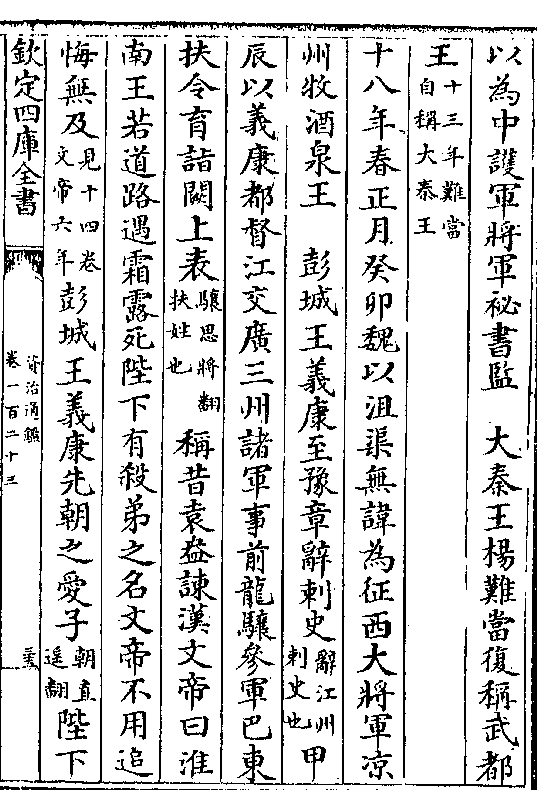 以為中護軍將軍祕書監　大秦王楊難當復稱武都
王十三年難當自稱大秦王
十八年春正月癸卯魏以沮渠無諱為征西大將軍涼
州牧酒泉王　彭城王義康至豫章辭刺史辭江州刺史也甲
辰以義康都督江交廣三州諸軍事前龍驤參軍巴東
扶令育詣闕上表驤思將翻扶姓也　稱昔袁盎諫漢文帝曰淮
南王若道路遇霜露死陛下有殺弟之名文帝不用追
悔無及見十四卷文帝六年彭城王義康先朝之愛子朝直遥翻陛下
欽定四庫全書
資治通鑑
卷一百二十三